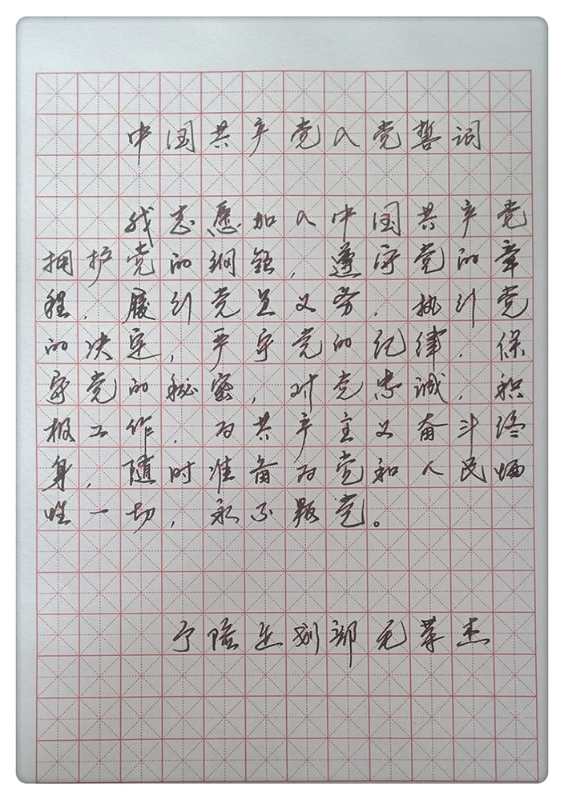 中国共产党入党誓词
我志愿加入中国共产党
拥护党的纲领，遵守党的章
程，履行党员义务，执行党
的决定，严守党的纪律，保
守党的秘密，对党忠诚，积
极工作，为共产主义奋斗终
身，随时准备为党和人民牺
牲一切，永不叛党。
宁陵 划部 毛 杰